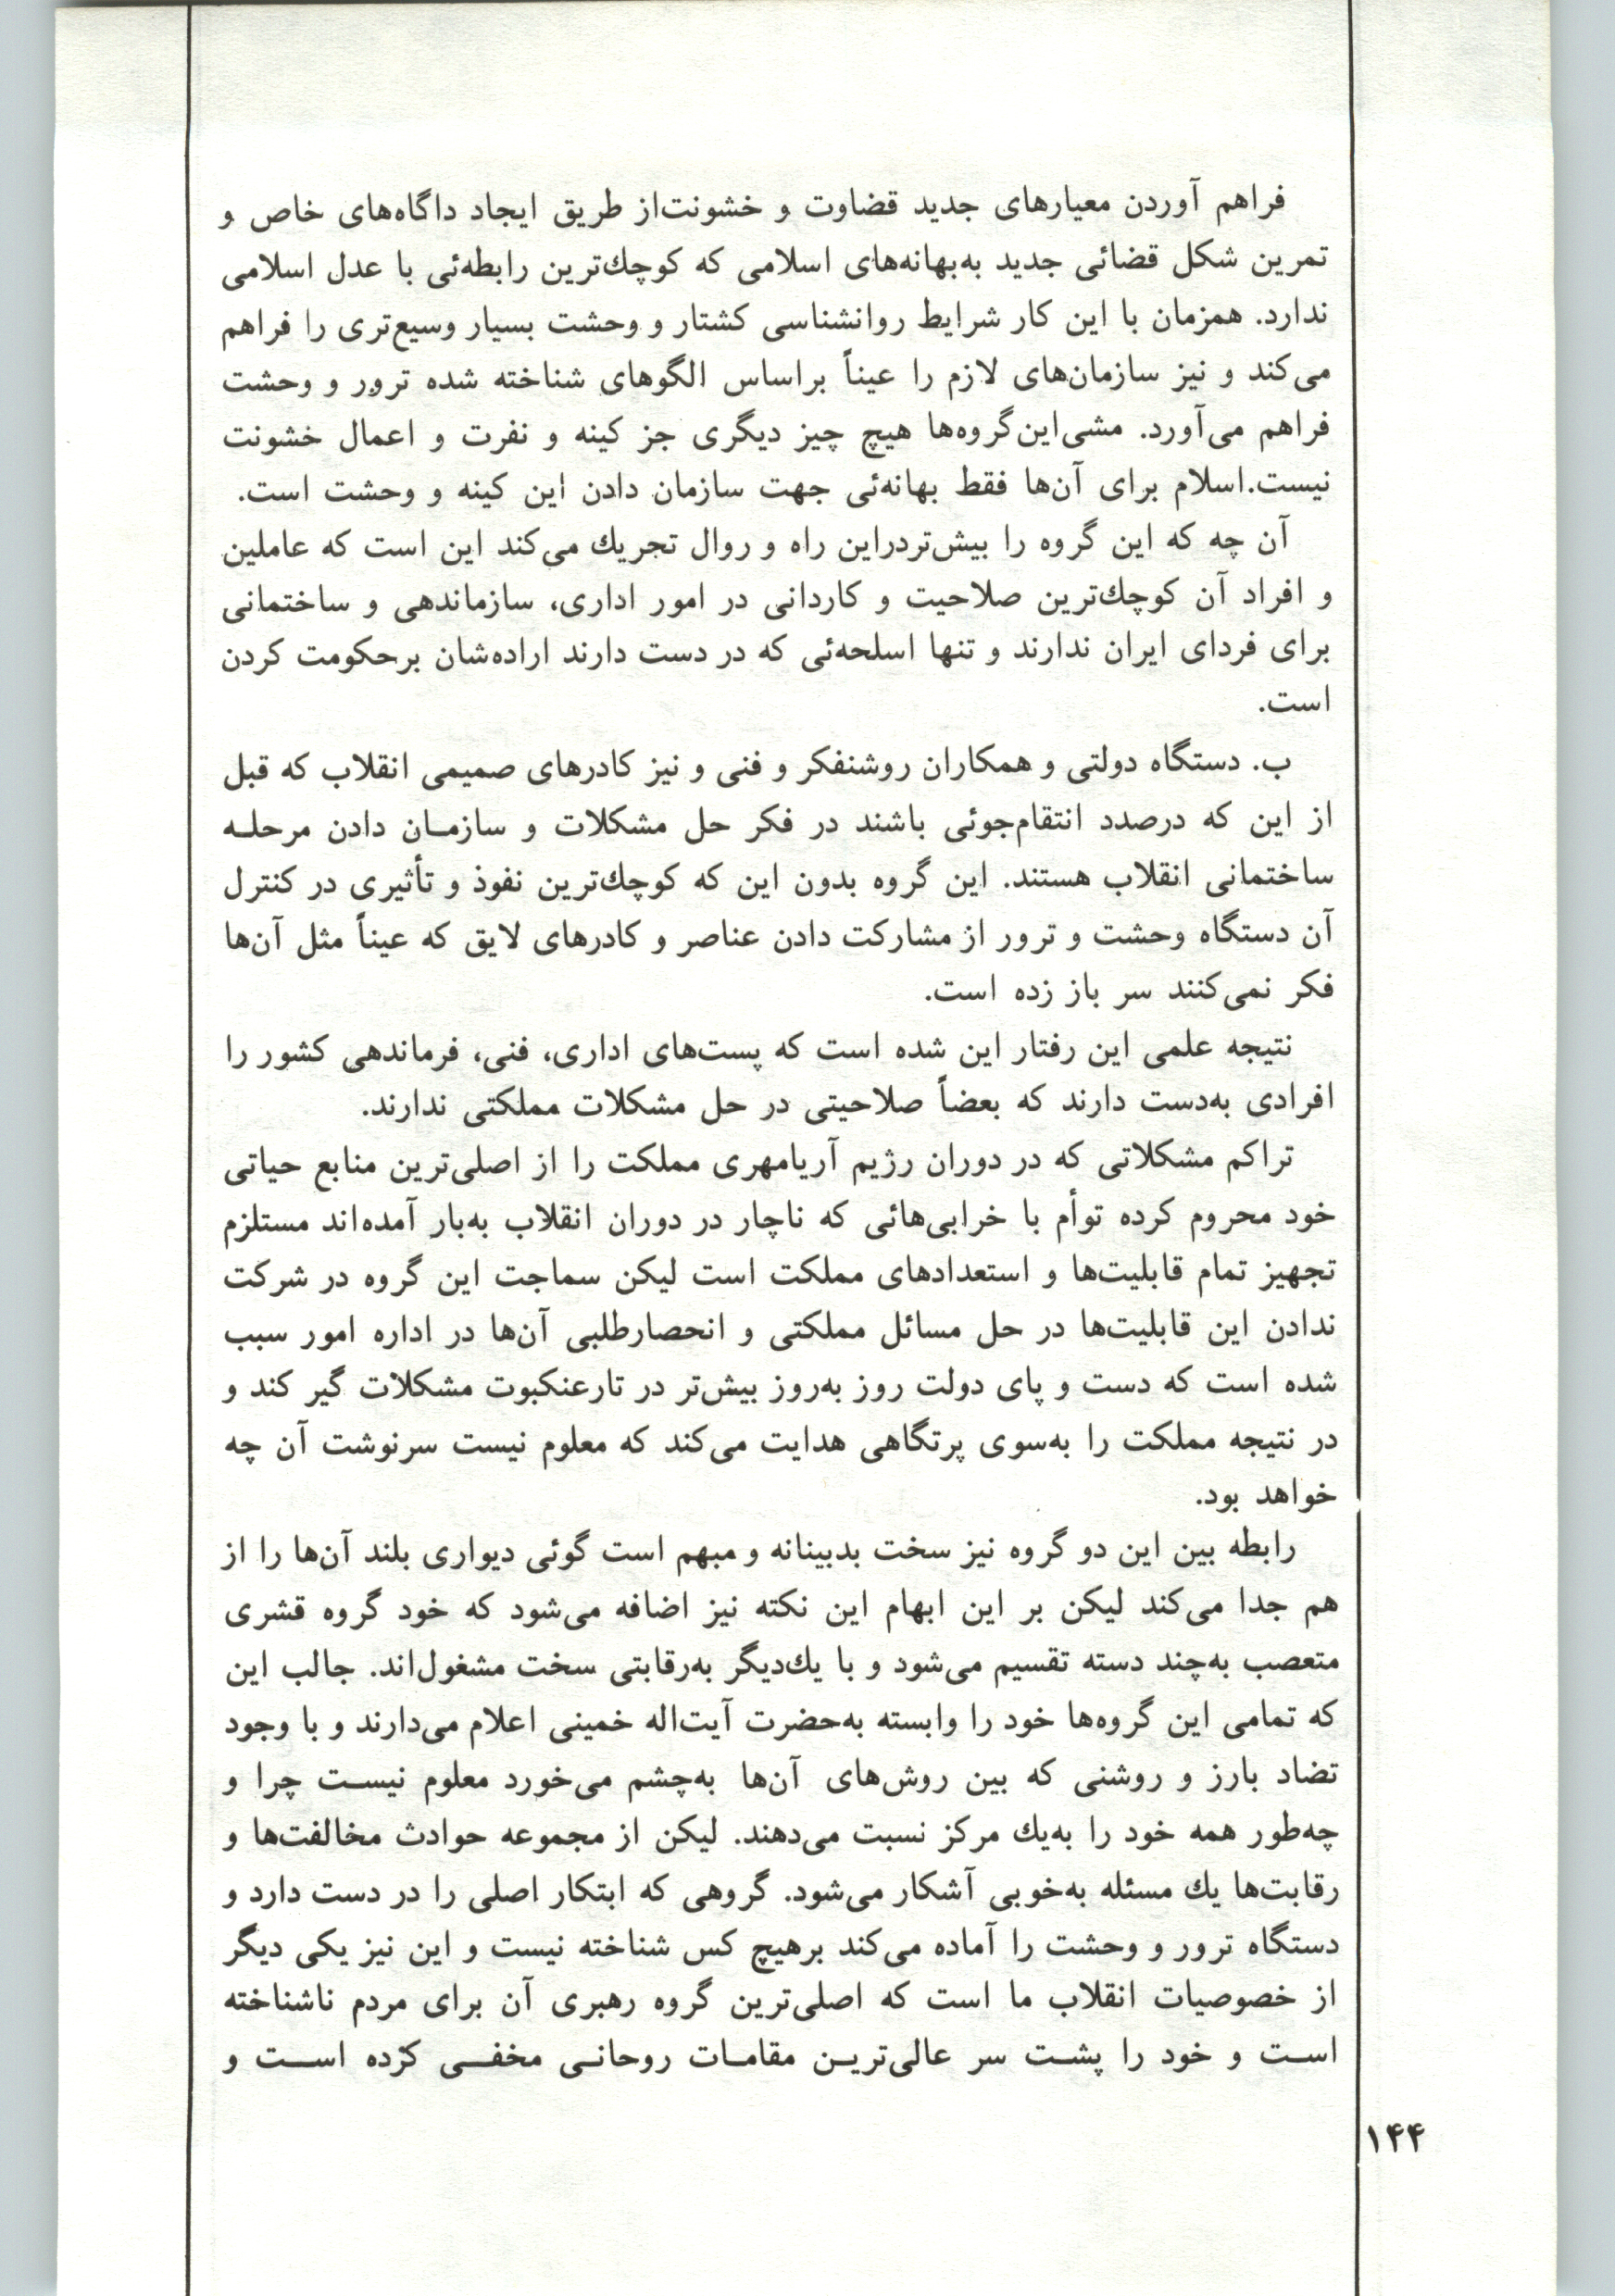 فراهم آوردن معیارهای جدید قضاوت و خشونت‌از طریق ایجاد داگاه‌های خاص و
تمرین شکل قضائی جدید به‌بهانه‌های اسلامی که کوچك‌ترین رابطه‌ئی با عدل اسلامی
ندارد. همزمان با این کار شرایط روانشناسی کشتار و وحشت بسیار وسیع‌تری را فراهم
می‌کند و نیز سازمان‌های لازم را عیناً براساس الگوهای شناخته شده ترور و وحشت
فراهم می‌آورد. مشی‌این‌گروه‌ها هیچ چیز دیگری جز کینه و نفرت و اعمال خشونت
نیست.اسلام برای آن‌ها فقط بهانه‌ئی جهت سازمان دادن این کینه و وحشت است.
آن چه که این گروه را بیش‌تردراین راه و روال تجریك می‌کند این است که عاملین
و افراد آن کوچك‌ترین صلاحیت و کاردانی در امور اداری، سازماندهی و ساختمانی
برای فردای ایران ندارند و تنها اسلحه‌ئی که در دست دارند اراده‌شان برحکومت کردن
است.
ب. دستگاه دولتی و همکاران روشنفکر و فنی و نیز کادرهای صمیمی انقلاب که قبل
از این که درصدد انتقام‌جوئی باشند در فکر حل مشکلات و سازمـان دادن مرحلـه
ساختمانی انقلاب هستند. این گروه بدون این که کوچك‌ترین نفوذ و تأثیری در کنترل
آن دستگاه وحشت و ترور از مشارکت دادن عناصر و کادرهای لایق که عیناً مثل آن‌ها
فکر نمی‌کنند سر باز زده است.
نتیجه علمی این رفتار این شده است که پست‌های اداری، فنی، فرماندهی کشور را
افرادی به‌دست دارند که بعضاً صلاحیتی در حل مشکلات مملکتی ندارند.
تراکم مشکلاتی که در دوران رژیم آریامهری مملکت را از اصلی‌ترین منابع حیاتی
خود محروم کرده توأم با خرابی‌هائی که ناچار در دوران انقلاب به‌بار آمده‌اند مستلزم
تجهیز تمام قابلیت‌ها و استعدادهای مملکت است لیکن سماجت این گروه در شرکت
ندادن این قابلیت‌ها در حل مسائل مملکتی و انحصارطلبی آن‌ها در اداره امور سبب
شده است که دست و پای دولت روز به‌روز بیش‌تر در تارعنکبوت مشکلات گیر کند و
در نتیجه مملکت را به‌سوی پرتگاهی هدایت می‌کند که معلوم نیست سرنوشت آن چه
خواهد بود.
رابطه بین این دو گروه نیز سخت بدبینانه و مبهم است گوئی دیواری بلند آن‌ها را از
هم جدا می‌کند لیکن بر این ابهام این نکته نیز اضافه می‌شود که خود گروه قشری
متعصب به‌چند دسته تقسیم می‌شود و با یك‌دیگر به‌رقابتی سخت مشغول‌اند. جالب این
که تمامی این گروه‌ها خود را وابسته به‌حضرت آیت‌اله خمینی اعلام می‌دارند و با وجود
تضاد بارز و روشنی که بین روش‌های آن‌ها به‌چشم می‌خورد معلوم نیسـت چرا و
چه‌طور همه خود را به‌یك مرکز نسبت می‌دهند. لیکن از مجموعه حوادث مخالفت‌ها و
رقابت‌ها یك مسئله به‌خوبی آشکار می‌شود. گروهی که ابتکار اصلی را در دست دارد و
دستگاه ترور و وحشت را آماده می‌کند برهیچ کس شناخته نیست و این نیز یکی دیگر
از خصوصیات انقلاب ما است که اصلی‌ترین گروه رهبری آن برای مردم ناشناخته
اسـت و خود را پشـت سر عالی‌تریـن مقامـات روحانـی مخفـی کرده اسـت و
۱۴۴